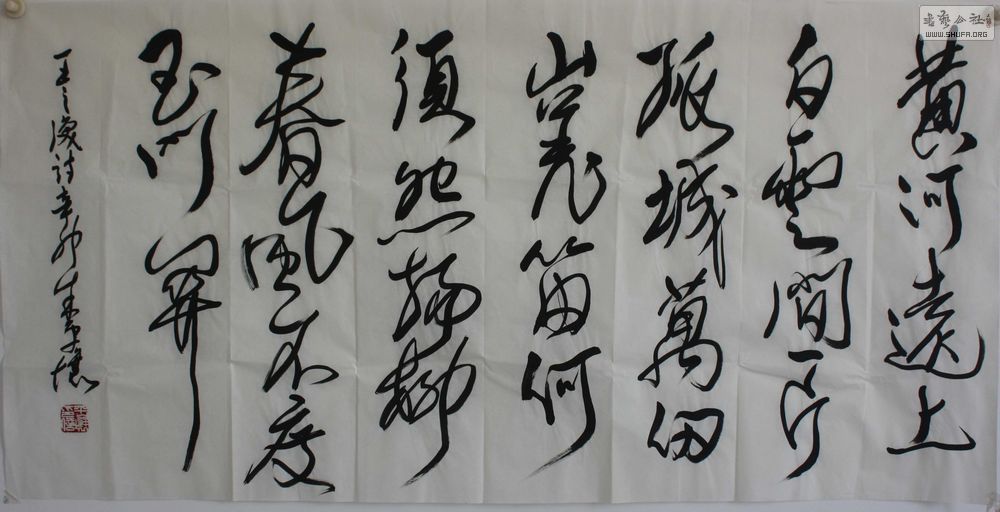 黄河遠上
白雲間一片
孤城萬仞
山羌笛何
須怨楊柳
春風不度
玉門關
王之渙詩辛卯年
書藝公社
WWW.SHUFA.ORG